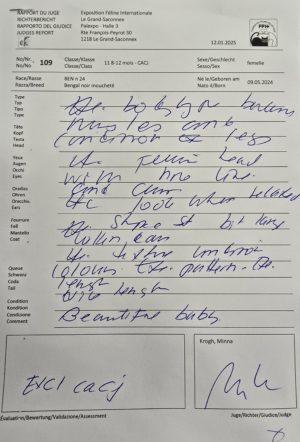 RAPPORT DU JUGE
RICHTERBERICHT
RAPPORTO DEL GIUDICE
JUDGES REPORT
Exposition Féline Internationale
Le Grand-Saconnex
Palexpo - Halle 3
Rte François-Peyrot 30
1218 Le Grand-Saconnex
12.01.2025
FIFe
No/Nr.
No/No
109
Classe/Klasse
Classe/Class
11 8-12 mois - CACJ
Sexe/Geschlecht
Sesso/Sex
femelle
Race/Rasse
Razza/Breed
BEN n 24
Bengal noir moucheté
Né le/Geboren am
Nato il/Born
09.05.2024
Type
Typ
Tipo
Type
Ex. body type
muscles and
condition & legs
Tête
Kopf
Testa
Head
Yeux
Augen
Occhi
Eyes
Ex. head
with nose line.
Oreilles
Ohren
Orecchie.
Ears
Good chin.
look when relaxed
Ex. shape st bit long
Fourrure
Fell
Mantello
Coat
Ex. texture condition
colour. Ex. pattern. Ex.
Queue
Schwanz
Coda
Tail
length
length
Condition
Kondition
Condizione
Comment
Beautiful baby.
Exc1 cacj
Evaluation/Bewertung/Validazione/Assessment
Krogh, Minna
Juge/Richter/Giudice/Judge